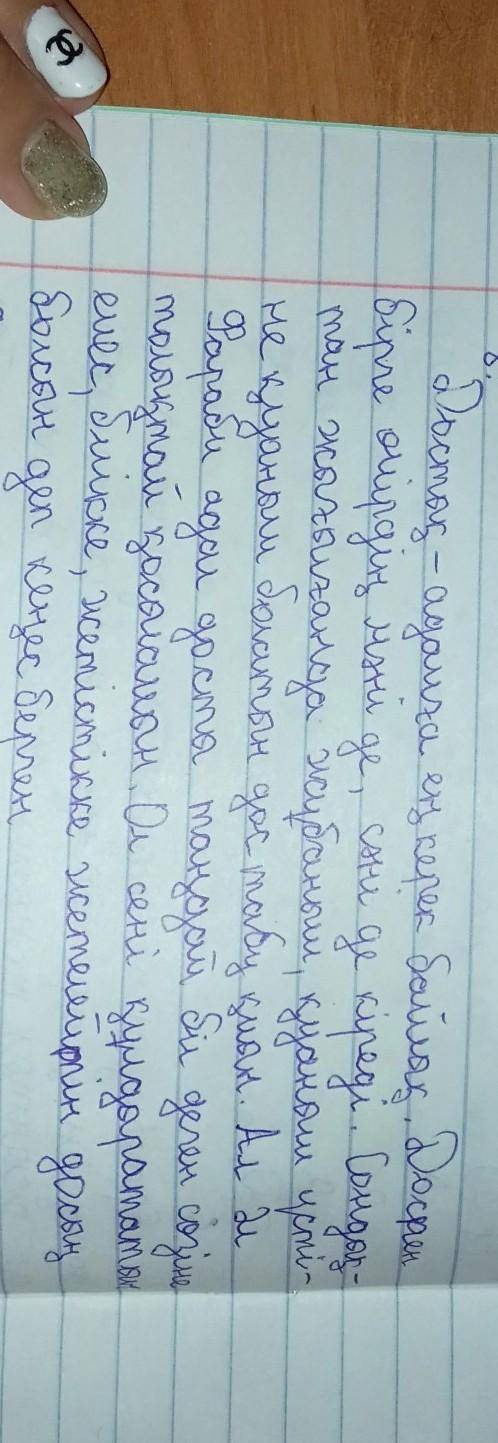 Достық – адамға ең керек байлық. Доспен
бірге өмірдің мәні де, сәні де кіреді. Сондық-
тан жығылғанда жұбаныш, қуаныш үсті-
не қуаныш болатын дос табу қиын. Ал Әл
Фараби адал досты таңдай біл деген сөзіне
толықтай қосыламын. Ол сені құлдырататын
емес, білікке, жетістікке жетелейтін досың
болсын деп кеңес берген